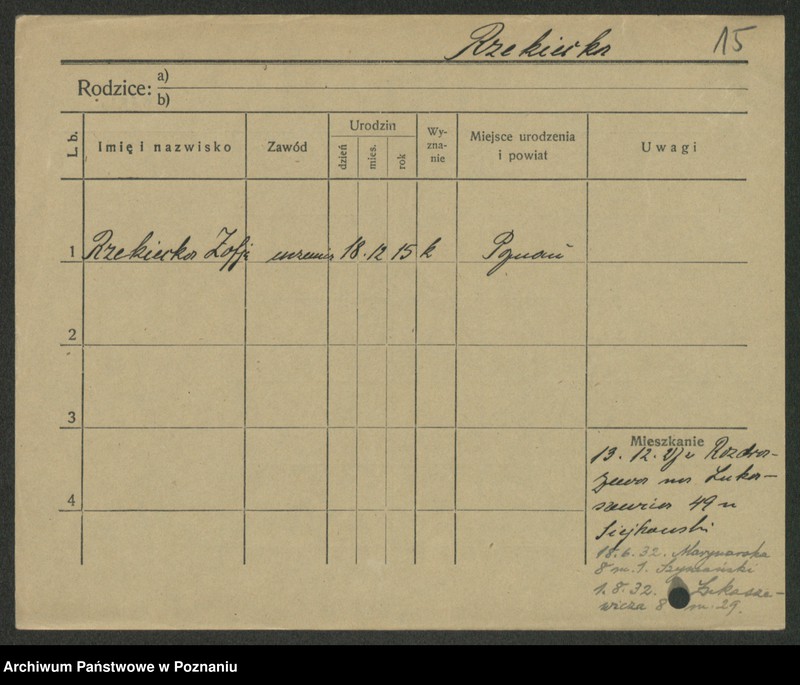 Rzekiecka 15
Rodzice: a)
b)
L. b. Imię i nazwisko Zawód Urodzin dzień mies. rok Wy-zna-nie Miejsce urodzenia i powiat Uwagi
1 Rzekiecka Zofja 18. 12 15 k Poznań
2
3
Mieszkanie
13. 12. z Rozdra-
żewa na Łuka-
szewicza 49 u
4
18.6.32. Marynarska
8 m. 1. Szymański
1.8.32. Łukasze-
wicza 8 m. 29.
Archiwum Państwowe w Poznaniu